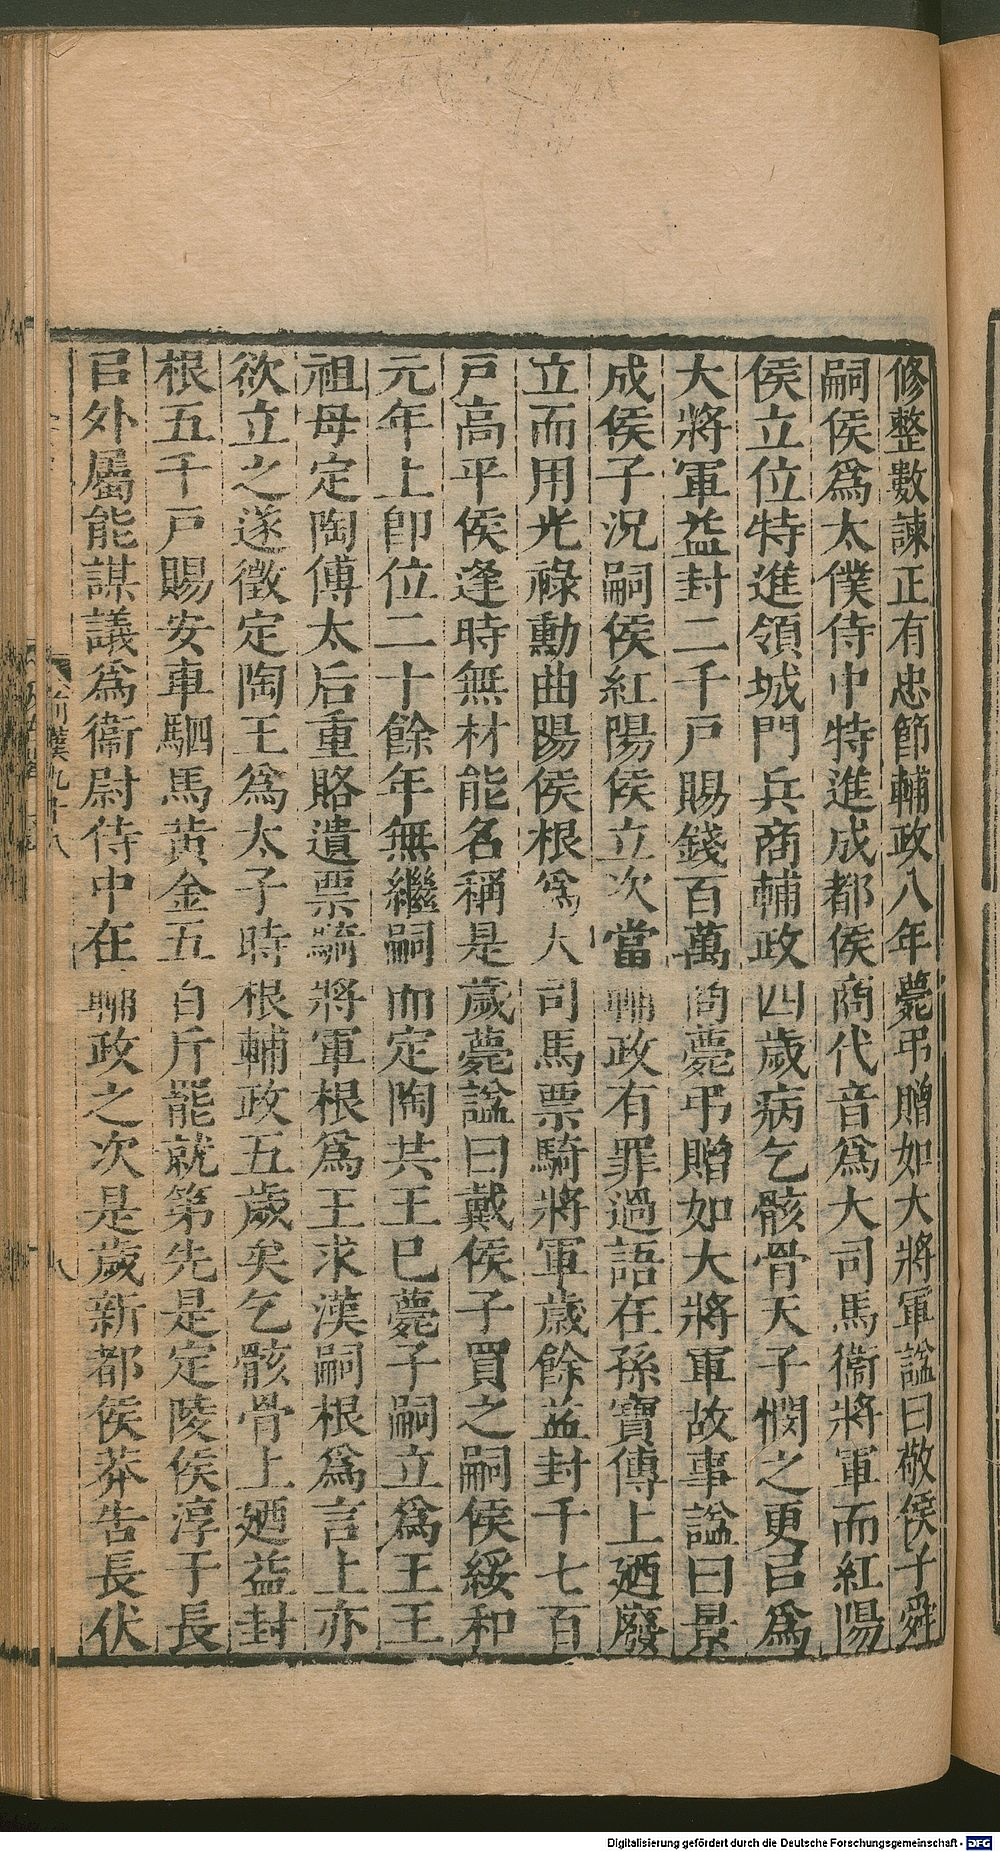 修整數諫正有忠節輔政八年薨弔贈如大將軍諡曰敬侯子舜
嗣侯爲太僕侍中特進成都侯商代音爲大司馬衞將軍而紅陽
侯立位特進領城門兵商輔政四歲病乞骸骨天子憫之更㠯爲
大將軍益封二千戸賜錢百萬商薨弔贈如大將軍故事諡曰景
成侯子況嗣侯紅陽侯立次當輔政有罪過語在孫寶傳上廼廢
立而用光祿勳曲陽侯根爲大司馬票騎將軍歲餘益封千七百
戸高平侯逢時無材能名稱是歲薨諡曰戴侯子買之嗣侯綏和
元年上卽位二十餘年無繼嗣而定陶共王已薨子嗣立爲王王
祖母定陶傅太后重賂遺票騎將軍根爲王求漢嗣根爲言上亦
欲立之遂徵定陶王爲太子時根輔政五歲矣乞骸骨上廼益封
根五千戸賜安車駟馬黃金五百斤罷就第先是定陵侯淳于長
㠯外屬能謀議爲衞尉侍中在輔政之次是歲新都侯莽告長伏
前漢九十八
八
Digitalisierung gefördert durch die Deutsche Forschungsgemeinschaft - DFG